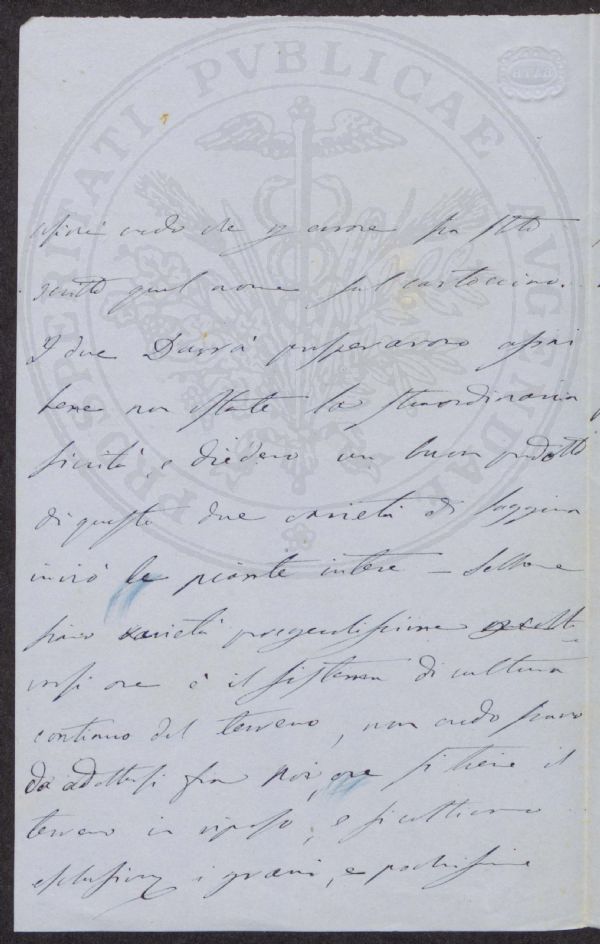 PROSPERITATI PVBLICAE AVGENDAE
BATH
credo che p errore sia stato
scritto quel nome sul cartoccino.
I due Durrà prosperarono assai
bene non ostante la straordinaria
siccità, e diedero un buon prodotto
di queste due varietà di saggina
invio le piante intere — Sebbene
siano varietà
varsi ove è il sistema di cultura
continuo del terreno, non credo siano
da adottarsi fra noi, ove si tiene il
terreno in riposo, e si coltivano
i grani, e pochissime